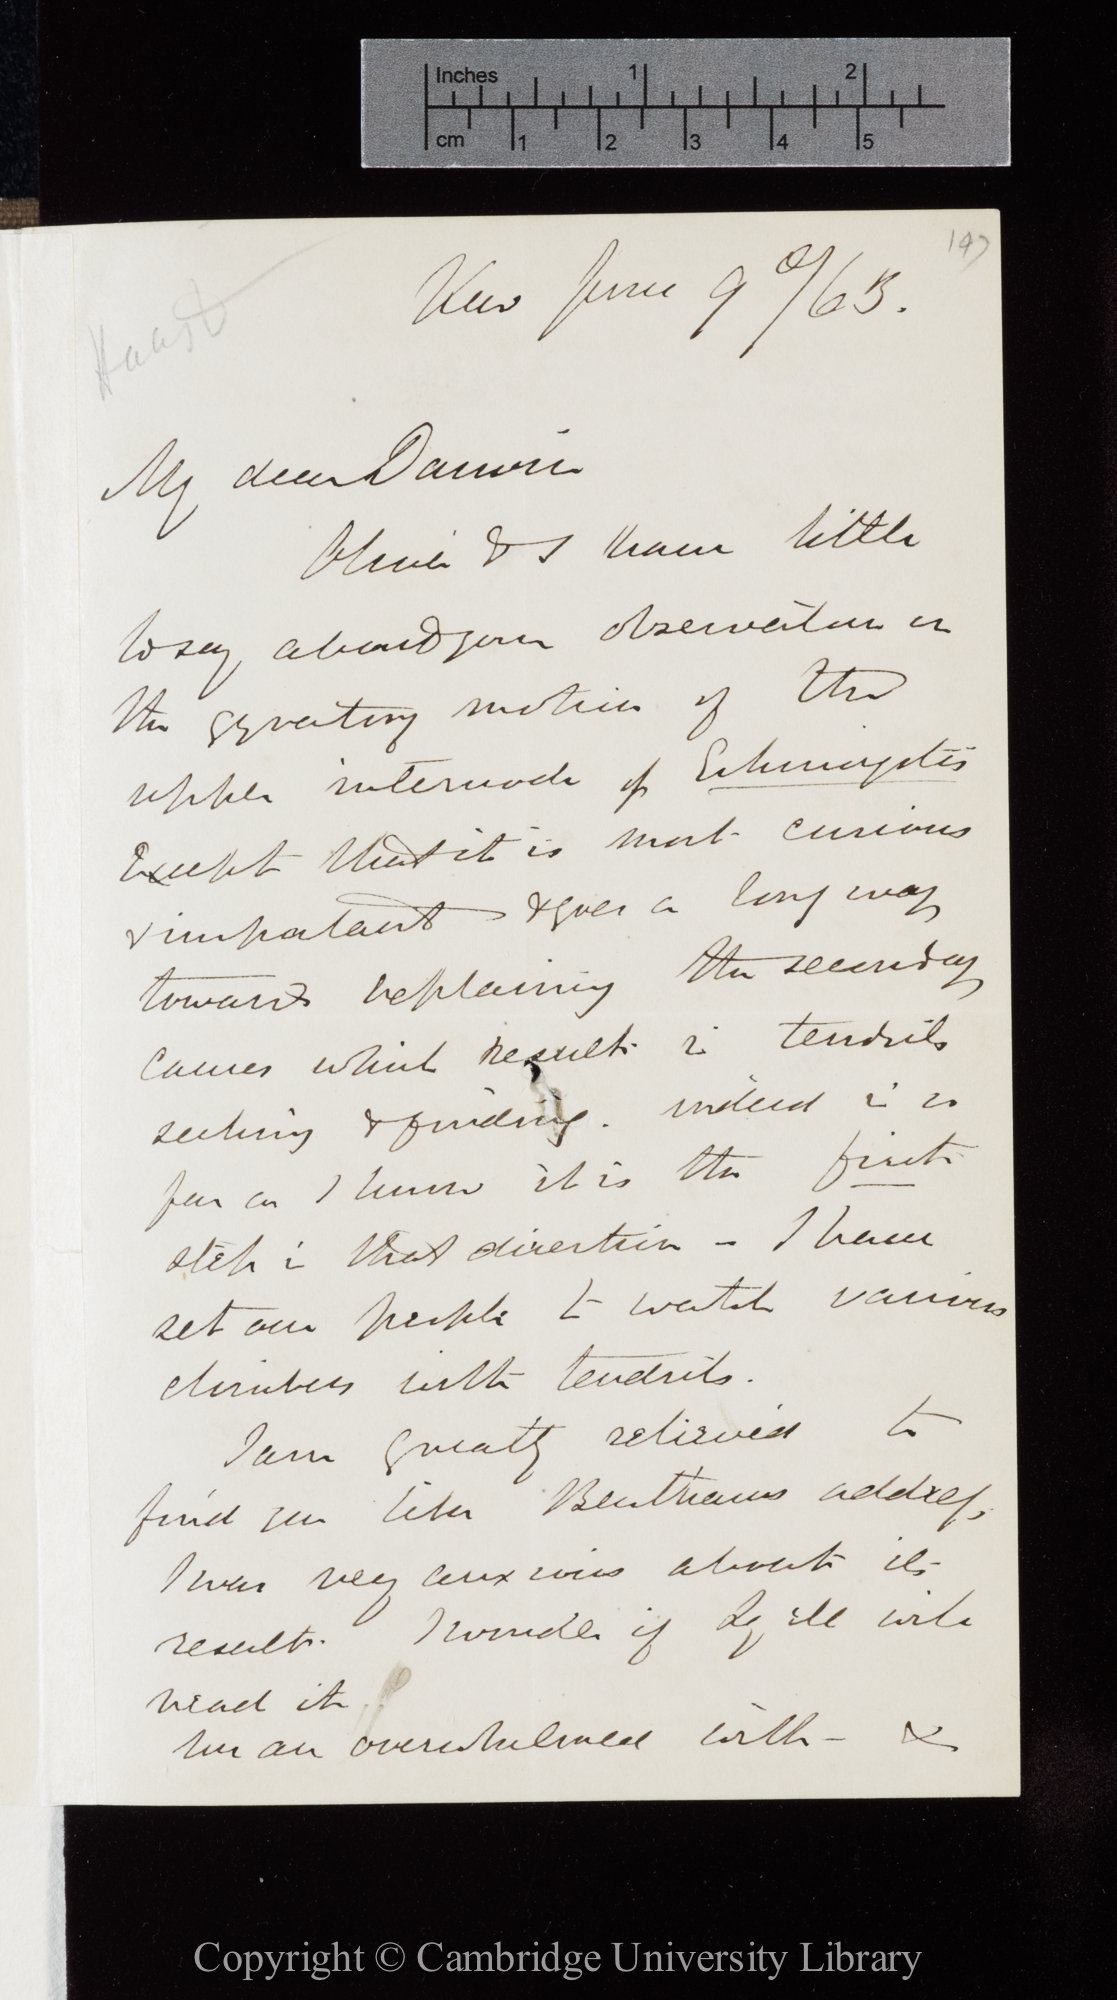 Inches 1 2
cm 1 2 3 4 5
147
Haast
Kew June 9th/63.
My dear Darwin
Oliver & I have little
to say about your observation on
the gyratory motion of the
upper internode of Echinocystis
Except that it is most curious
& important & goes a long way
towards explaining the secondary
causes which result in tendrils
seeking & finding. indeed in so
far as I know it is the first
step in that direction – I have
set our people to watch various
climbers with tendrils.
I am greatly relieved to
find you like Benthams address,
I was very anxious about its
result. I wonder if Lyell will
read it
We are overwhelmed with – &
Copyright © Cambridge University Library